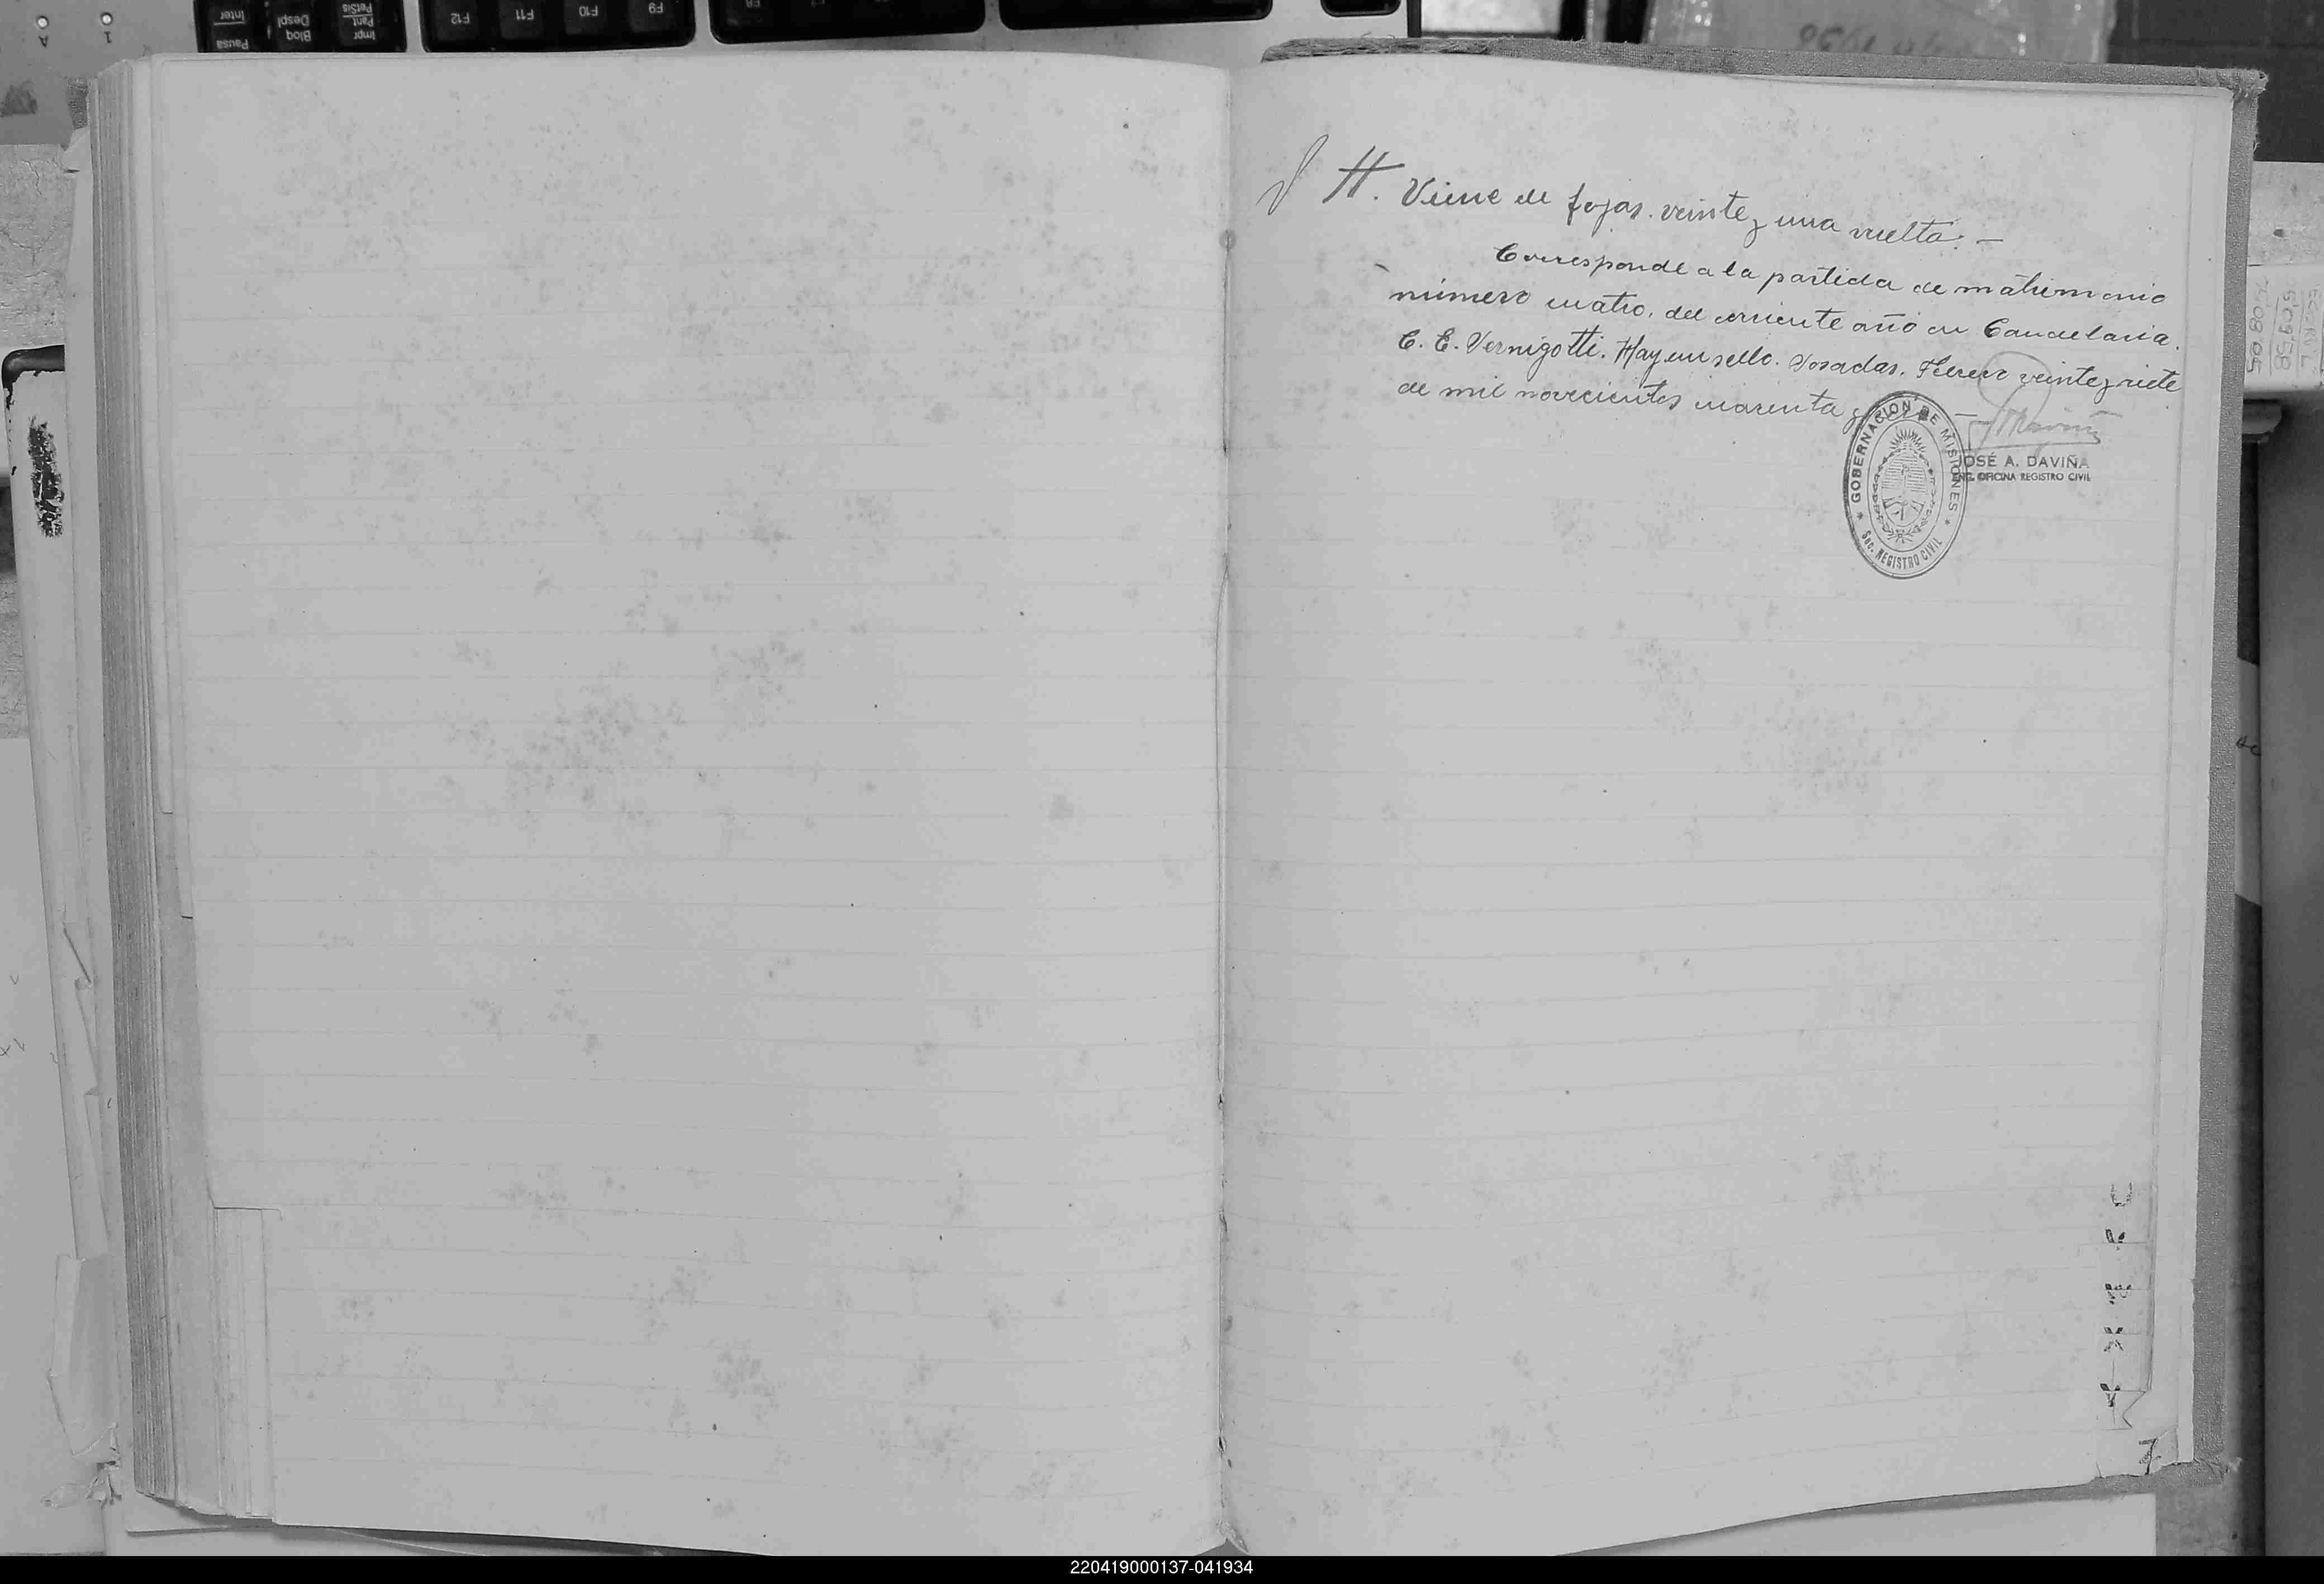 H. Viene de fojas. veinte y una vuelta. —
Corresponde a la partida de matrimonio
número cuatro, del corriente año en Candelaria.
C. E. Vernigotti. Hay un sello. Posadas. Febrero veinte y siete
de mil novecientos cuarenta y
GOBERNACION DE MISIONES
Sec. REGISTRO CIVIL
JOSÉ A. DAVIÑA
OFICINA REGISTRO CIVIL
220419000137-041934
Inter
Pausa
Despl
Bloq
Impr
Pant
PetSis
F12
F11
F10
F9
F8
A
1